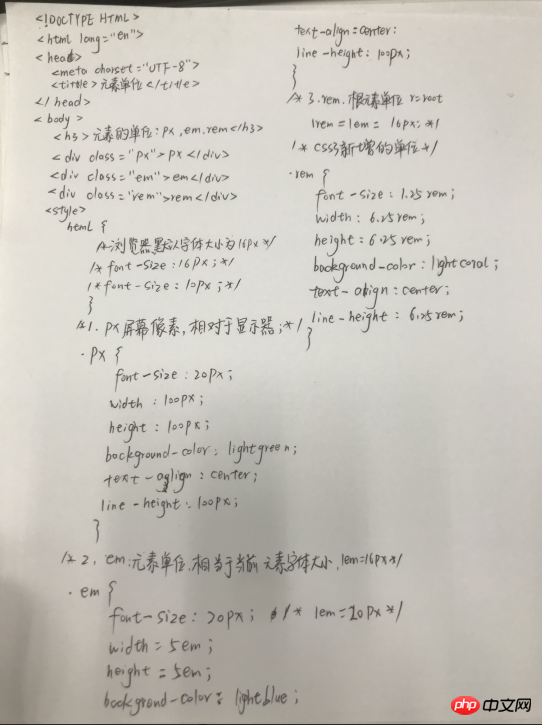 <!DOCTYPE HTML>
<html lang="en">
<head>
<meta charset="UTF-8">
<title>元素单位</title>
</head>
<body>
<h3>元素的单位:px,em.rem</h3>
<div class="px">px</div>
<div class="em">em</div>
<div class="rem">rem</div>
<style>
html {
/*浏览器默认字体大小为16px*/
/*font-size:16px;*/
/*font-size:10px;*/
}
/*1.px屏幕像素,相对于显示器;*/
.px {
font-size:20px;
width:100px;
height:100px;
background-color:lightgreen;
text-align:center;
line-height:100px;
}
/*2.em:元素单位.相当于当前元素字体大小,1em=16px*/
.em {
font-size:20px; /*1em=20px*/
width=5em;
height=5em;
backgrond-color:lightblue;
text-align=center:
line-height:100px;
}
/*3.rem.根元素单位 r=root
1rem=1em=16px;*/
/*css3新增的单位*/
.rem {
font-size:1.25rem;
width:6.25rem;
height:6.25rem;
background-color:lightcoral;
text-align:center;
line-height:6.25rem;
}
php中文网